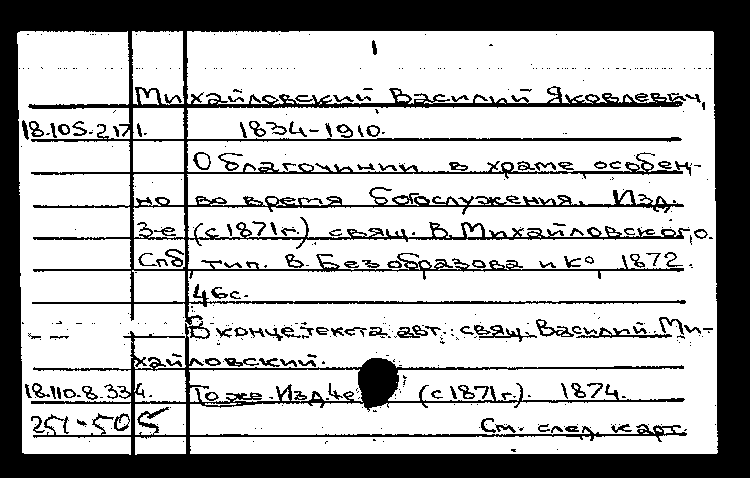 1
Михайловский Василий Яковлевич,
18.105.2171. 1834-1910.
О благочинии в храме, особен-
но во время богослужения. Изд.
3-е (с 1871г.) свящ. В. Михайловского.
Спб, тип. В. Безобразова и К°, 1872.
46с.
В конце текста авт.: свящ. Василий Ми-
хайловский.
18.110.8.334. То же. Изд. 4е (с 1871г.). 1874.
251-505 См. след. карт.